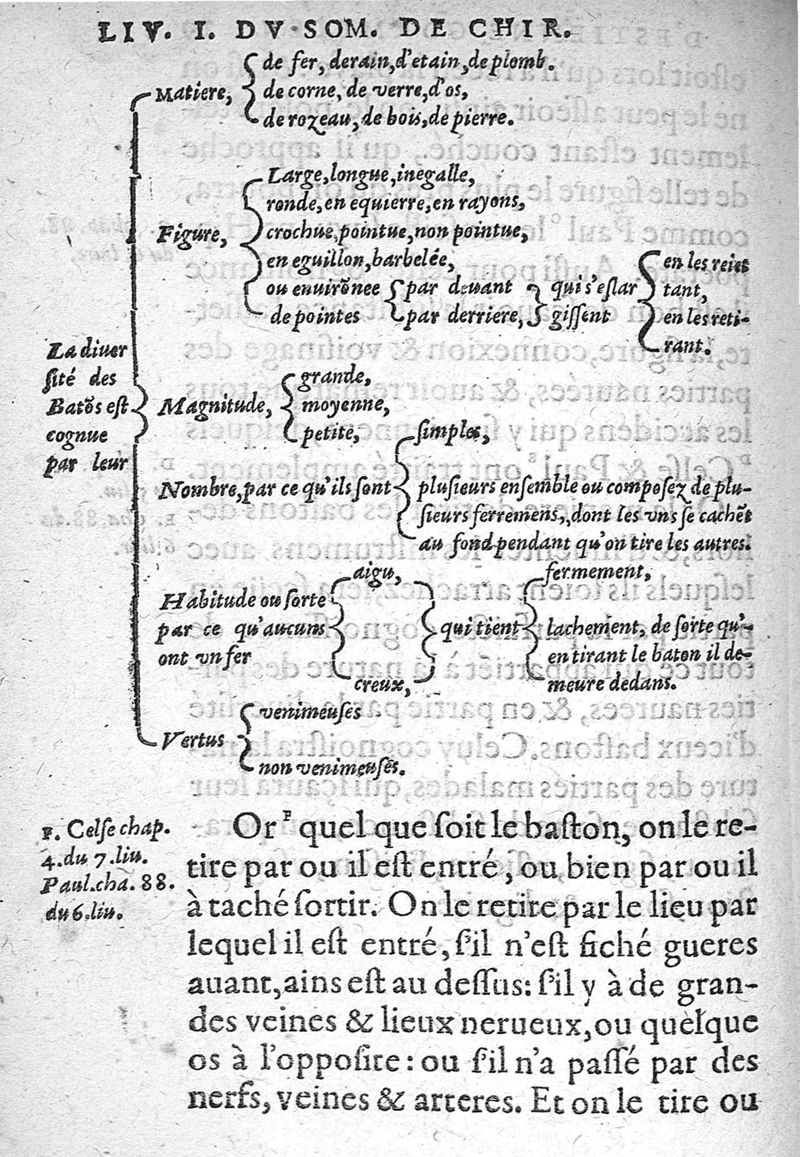 LIV. I. DV SOM. DE CHIR.
La diuer
sité des
Batõs est
cognue
par leur
Matiere,
de fer, derain, d'etain, de plomb.
de corne, de verre, d'os,
de rozeau, de bois, de pierre.
Figure,
Large, longue, inegalle,
ronde, en equierre, en rayons,
crochue, pointue, non pointue,
en eguillon, barbelée,
ou enuirõnee
de pointes
par deuant
par derriere,
qui s'eslar
gissent
en les reiet
tant,
en les reti-
rant.
Magnitude,
grande,
moyenne,
petite,
Nombre, par ce qu'ils sont
simples,
plusieurs ensemble ou composez de plu-
sieurs ferremens, dont les vns se cachẽt
au fond pendant qu'on tire les autres.
Habitude ou sorte
par ce qu'aucuns
ont vn fer
aigu,
creux,
qui tient
fermement,
lachement, de sorte qu'-
en tirant le baton il de-
meure dedans.
Vertus
venimeuses
non venimeuses.
F. Celse chap.
4. du 7. liu.
Paul. cha. 88.
du 6. liu.
Or F quel que soit le baston, on le re-
tire par ou il est entré, ou bien par ou il
à taché sortir. On le retire par le lieu par
lequel il est entré, s'il n'est fiché gueres
auant, ains est au dessus: s'il y à de gran-
des veines & lieux nerueux, ou quelque
os à l'opposite: ou s'il n'a passé par des
nerfs, veines & arteres. Et on le tire ou